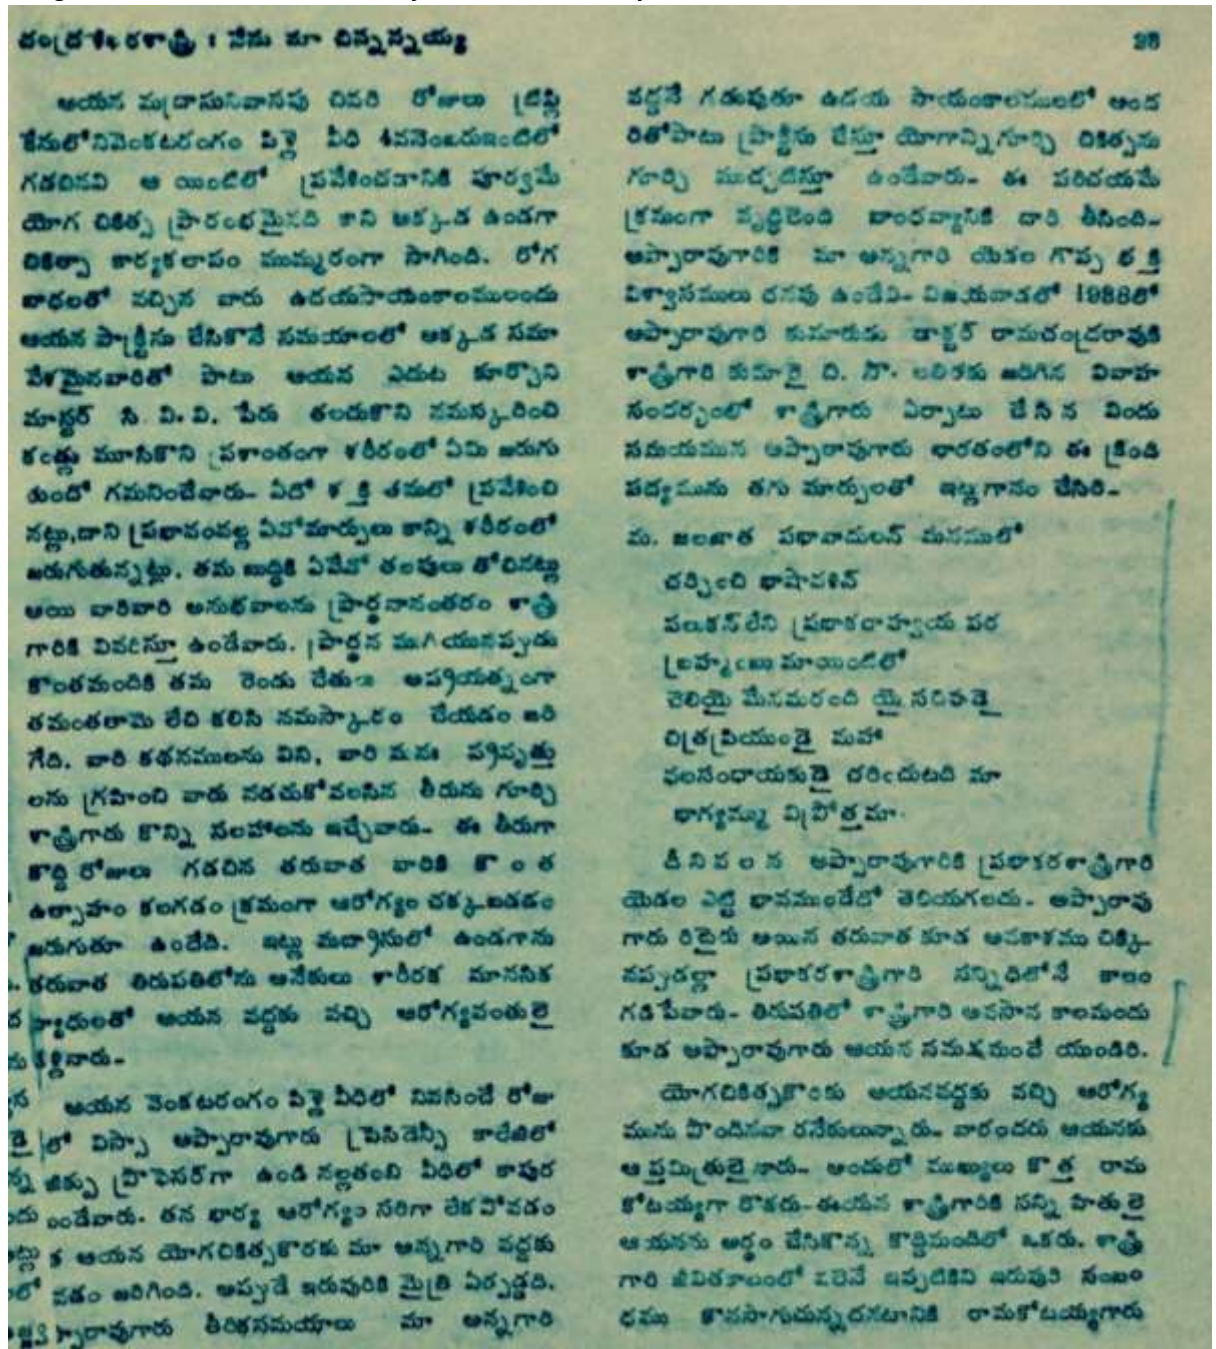 చంద్రశేఖరశాస్త్రి : నేను మా చిన్నన్నయ్య
ఆయన మద్రాసునివాసపు చివరి రోజులు ట్రిప్లి
కేనులోనివెంకటరంగం పిళ్లె వీధి 4వనెంబరుఇంటిలో
గడచినవి ఆ యింటిలో ప్రవేశించడానికి పూర్వమే
యోగ చికిత్స ప్రారంభమైనది కాని అక్కడ ఉండగా
చికిత్సా కార్యకలాపం ముమ్మరంగా సాగింది. రోగ
బాధలతో వచ్చిన వారు ఉదయసాయంకాలములందు
ఆయన ప్రాక్టీసు చేసికొనే సమయాలలో అక్కడ సమా
వేశమైనవారితో పాటు ఆయన ఎదుట కూర్చొని
మాస్టర్ సి. వి. వి. పేరు తలచుకొని నమస్కరించి
కండ్లు మూసికొని ప్రశాంతంగా శరీరంలో ఏమి జరుగు
తుందో గమనించేవారు- ఏదో శక్తి తమలో ప్రవేశించి
నట్లు,దాని ప్రభావంవల్ల ఏవోమార్పులు కాన్ని శరీరంలో
జరుగుతున్నట్లు. తమ బుద్ధికి ఏవేవో తలపులు తోచినట్లు
ఆయి వారివారి అనుభవాలను ప్రార్థనానంతరం శాస్త్రి
గారికి వివరిస్తూ ఉండేవారు. ప్రార్థన ముగియునప్పుడు
కొంతమందికి తమ రెండు చేతులు అప్రయత్నంగా
తమంతలామె లేచి కలిసి నమస్కారం చేయడం జరి
గేది. వారి కథనములను విని, వారి మనః ప్రవృత్తు
లను గ్రహించి వారు నడచుకోవలసిన తీరును గూర్చి
శాస్త్రిగారు కొన్ని సలహాలను ఇచ్చేవారు- ఈ తీరుగా
కొద్ది రోజులు గడచిన తరువాత వారికి కొంత
ఉత్సాహం కలగడం క్రమంగా ఆరోగ్యం చక్కబడడం
జరుగుతూ ఉండేది. ఇట్లు మద్రాసులో ఉండగాను
తరువాత తిరుపతిలోను అనేకులు శారీరక మానసిక
వ్యాధులతో ఆయన వద్దకు వచ్చి ఆరోగ్యవంతులై
వెళ్లినారు-
ఆయన వెంకటరంగం పిళ్లె వీధిలో నివసించే రోజు
లలో విస్సా అప్పారావుగారు ప్రెసిడెన్సీ కాలేజిలో
ఫిజిక్సు ప్రొఫెసర్‌గా ఉండి నల్లతంబి వీధిలో కాపుర
ఉండేవారు. తన భార్య ఆరోగ్యం సరిగా లేకపోవడం
ఆయన యోగచికిత్సకొరకు మా అన్నగారి వద్దకు
రావడం జరిగింది. అప్పుడే ఇరువురికి మైత్రి ఏర్పడ్డది.
అప్పారావుగారు తీరికసమయాలు మా అన్నగారి
వద్దనే గడుపుతూ ఉదయ సాయంకాలములలో అంద
రితోపాటు ప్రాక్టీసు చేస్తూ యోగాన్నిగూర్చి చికిత్సను
గూర్చి ముచ్చటిస్తూ ఉండేవారు- ఈ పరిచయమే
క్రమంగా వృద్ధిచెంది బాంధవ్యానికి దారి తీసింది-
అప్పారావుగారికి మా అన్నగారి యెడల గొప్ప భక్తి
విశ్వాసములు చనవు ఉండేవి- విజయవాడలో 1938లో
అప్పారావుగారి కుమారుడు డాక్టర్ రామచంద్రరావుకి
శాస్త్రిగారి కుమార్తె చి. సౌ. లలితకు జరిగిన వివాహ
సందర్భంలో శాస్త్రిగారు ఏర్పాటు చేసిన విందు
సమయమున అప్పారావుగారు భారతంలోని ఈ క్రింది
పద్యమును తగు మార్పులతో ఇట్లుగానం చేసిరి-
మ. జలజాత ప్రభవాదులన్ మనములో
చర్చించి భాషావళిన్
పలుకన్‌లేని ప్రభాకరాహ్వయ పర
బ్రహ్మంబు మాయింటిలో
చెలియై మేనమరంది యై సచివుడై
చిత్తప్రియుండై మహా
ఫలసంధాయకుడై చరించుటది మా
భాగ్యమ్ము విప్రోత్తమా.
దీనివలన అప్పారావుగారికి ప్రభాకరశాస్త్రిగారి
యెడల ఎట్టి భావముండేదో తెలియగలదు- అప్పారావు
గారు రిటైరు అయిన తరువాత కూడ అవకాశము చిక్కి
నప్పుడల్లా ప్రభాకరశాస్త్రిగారి సన్నిధిలోనే కాలం
గడిపేవారు- తిరుపతిలో శాస్త్రిగారి అవసాన కాలమందు
కూడ అప్పారావుగారు ఆయన సమక్షమందే యుండిరి.
యోగచికిత్సకొరకు ఆయనవద్దకు వచ్చి ఆరోగ్య
మును పొందినవా రనేకులున్నారు- వారందరు ఆయనకు
ఆప్తమిత్రులైనారు- అందులో ముఖ్యులు కొత్త రామ
కోటయ్యగా రొకరు-ఈయన శాస్త్రిగారికి సన్నిహితులై
ఆయనను అర్థం చేసికొన్న కొద్దిమందిలో ఒకరు. శాస్త్రి
గారి జీవితకాలంలో వలెనే ఇప్పటికిని ఇరువురి సంబం
ధము కొనసాగుచున్నదనటానికి రామకోటయ్యగారు